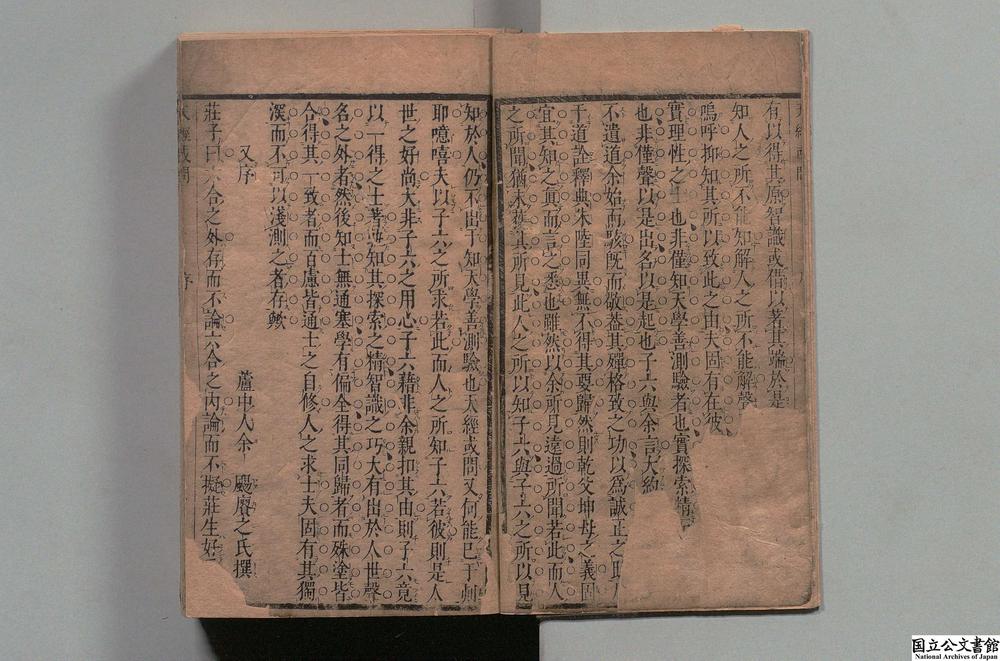 有以得其原智識或借以著其端於是
知人之所不能知解人之所不能解聲
嗚呼抑知其所以致此之由夫固有在彼
實理性之士也非僅知天學善測驗者也實探索精
也非僅聲以是出名以是起也子六與余言大約
不遺道余始而駭既而敬蓋其殫格致之功以為誠正之
于道詮釋與朱陸同異無不得其要歸然則乾父坤母之義固
宜其知之真而言之悉也雖然以余所見遠過所聞若此而人
之所聞猶未獲其所見此人之所以知子六與子六之所以見
知於人仍不出于知天學善測驗也天經或問又何能已于
耶噫嘻夫以子六之所求若此而人之所知子六若彼則是人
世之好尚大非子六之用心子六藉非余親扣其由則子六竟
以一得之士著安知其探索之精智識之巧大有出於人世聲
名之外者然後知士無通塞學有偏全得其同歸者而殊塗皆
合得其一致者而百慮皆通士之自修人之求士夫固有其獨
深而不可以淺測之者存歟
蘆中人余 颺賡之氏撰
又序
莊子曰六合之外存而不論六合之内論而不擬莊生好
天經或問 序
国立公文書館
National Archives of Japan